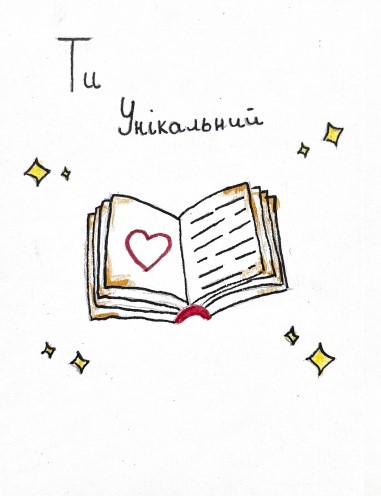 Ти
Унікальний